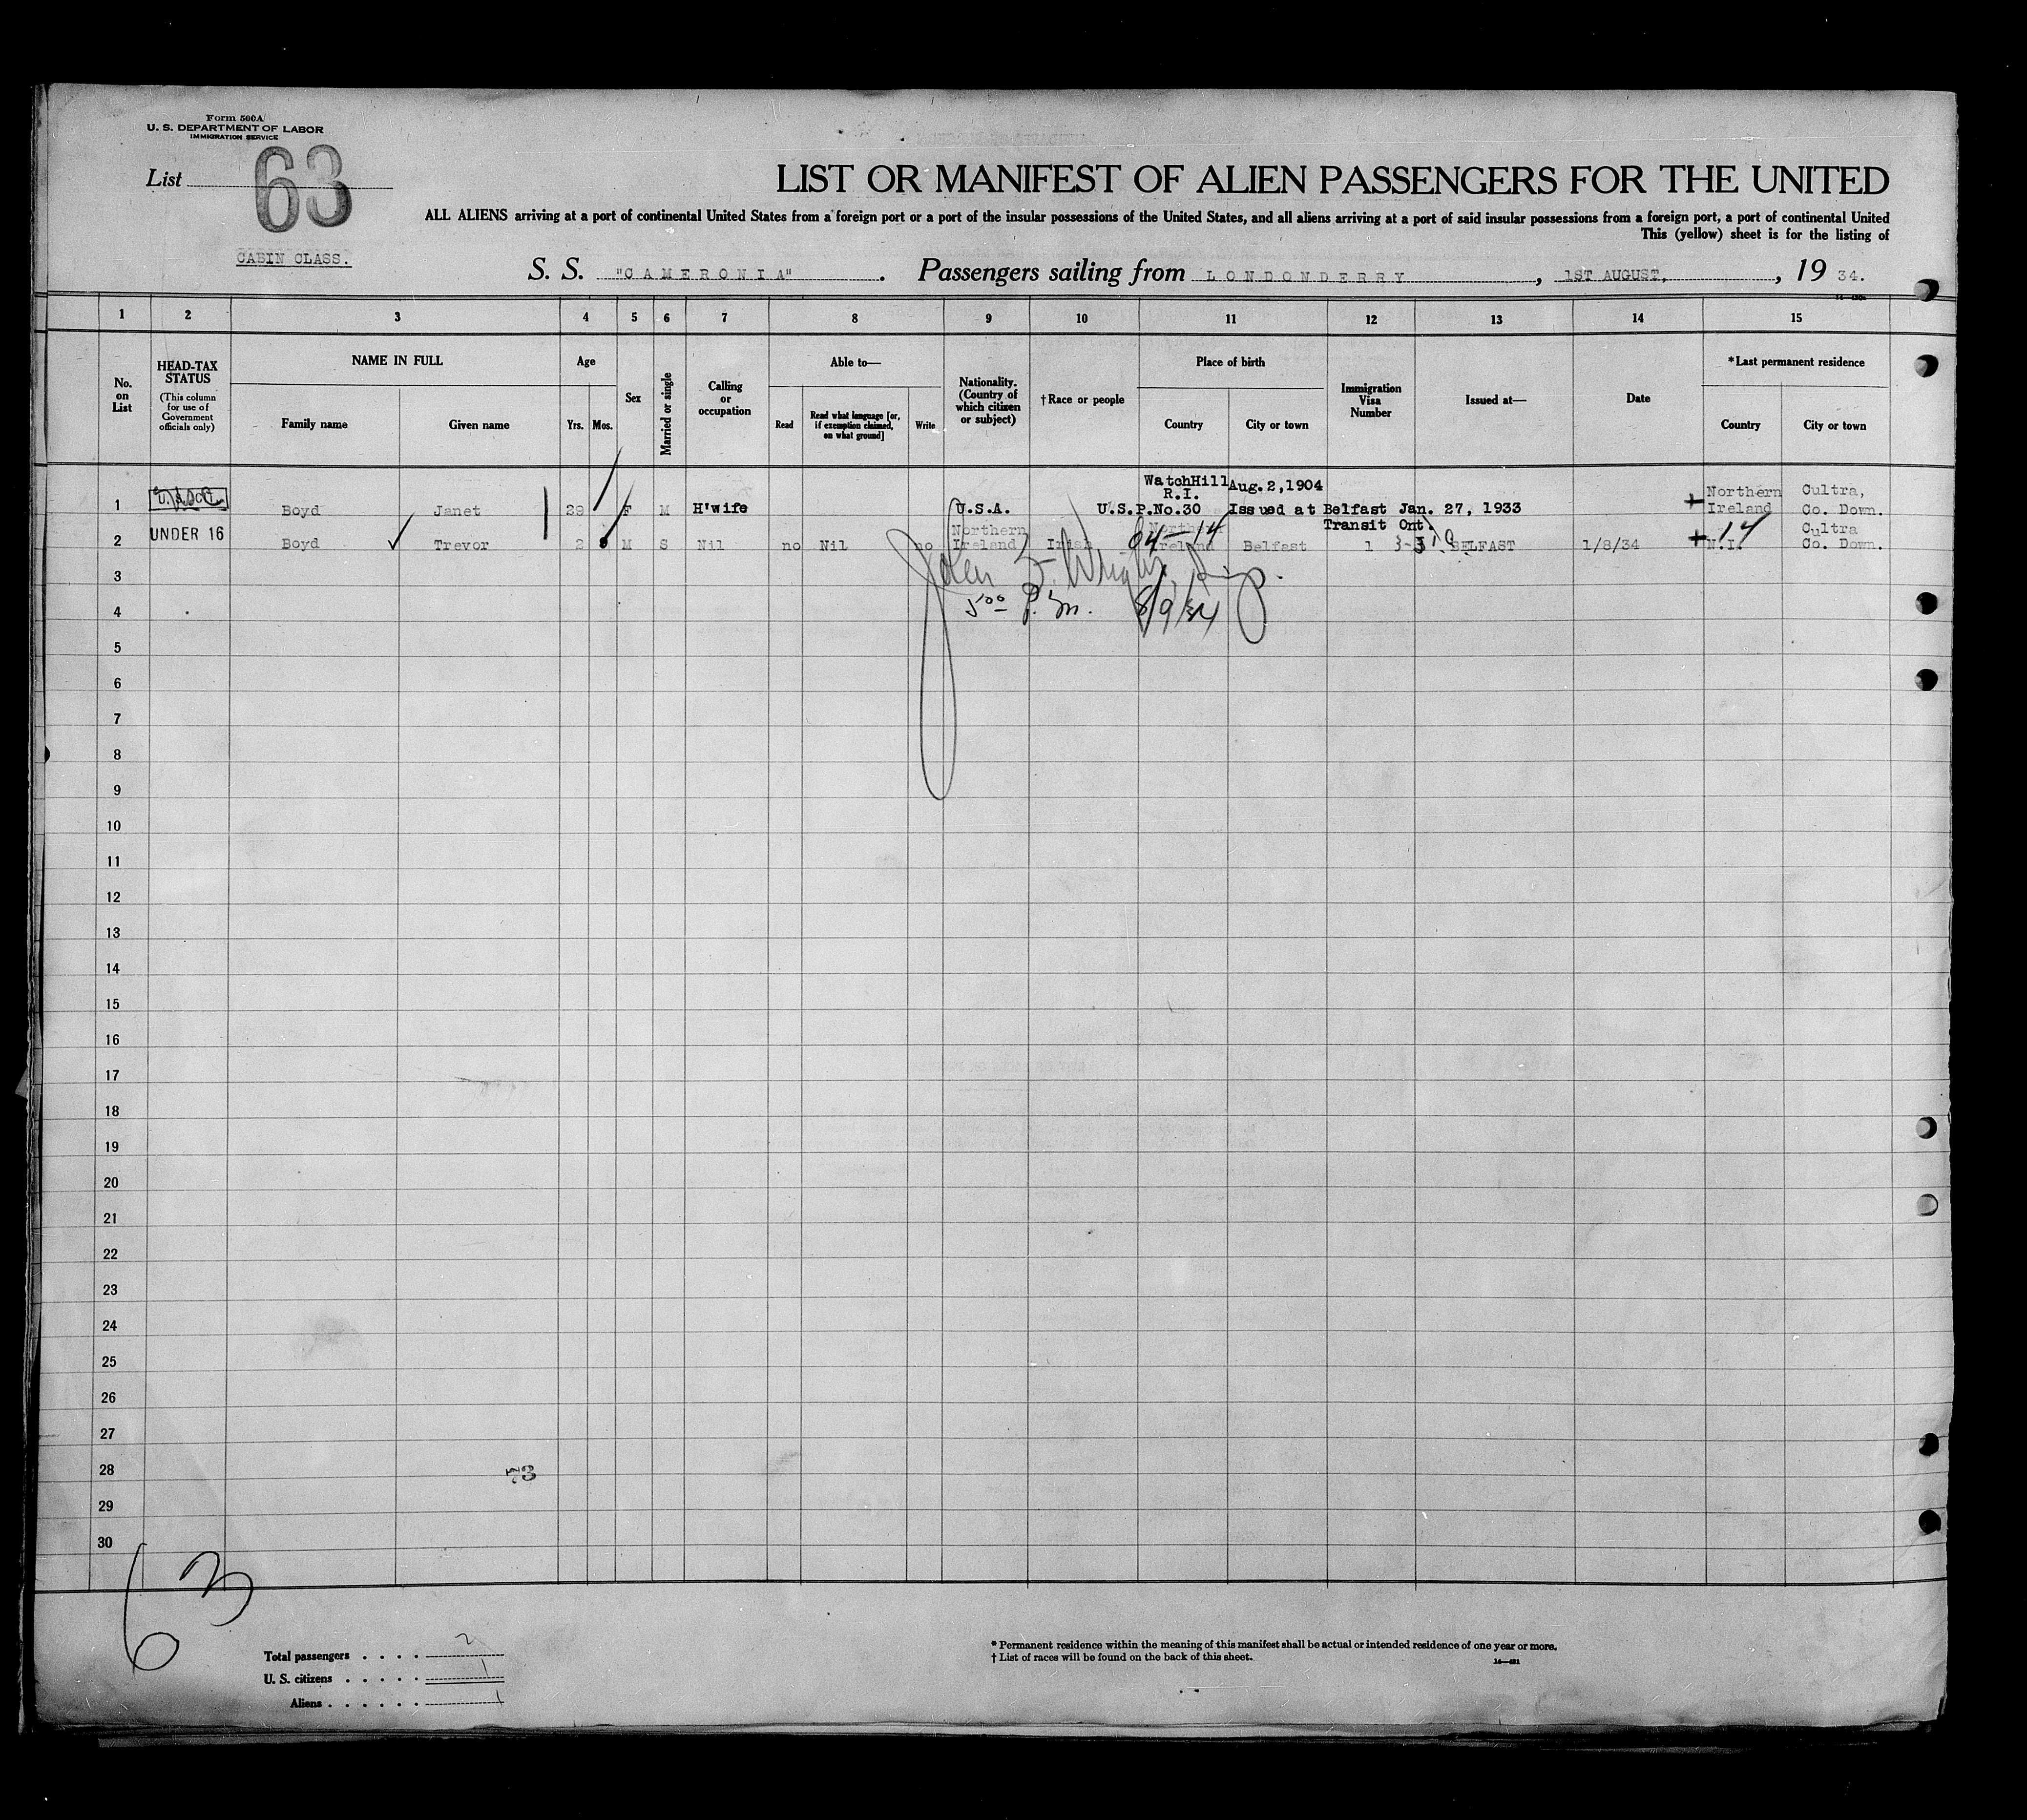 Form 500A
U. S. DEPARTMENT OF LABOR
IMMIGRATION SERVICE
List 63
CABIN CLASS.
LIST OR MANIFEST OF ALIEN PASSENGERS FOR THE UNITED
ALL ALIENS arriving at a port of continental United States from a foreign port or a port of the insular possessions of the United States, and all aliens arriving at a port of said insular possessions from a foreign port, a port of continental United
This (yellow) sheet is for the listing of
S. S. "CAMERONIA". Passengers sailing from LONDONDERRY, 1ST AUGUST, , 19 34.
1 2 3 4 5 6 7 8 9 10 11 12 13 14 15
No. on List
HEAD-TAX STATUS
(This column for use of Government officials only)
NAME IN FULL
Family name Given name
Age
Yrs. Mos.
Sex
Married or single
Calling or occupation
Able to—
Read
Read what language [or, if exemption claimed, on what ground]
Write
Nationality. (Country of which citizen or subject)
†Race or people
Place of birth
Country City or town
Immigration Visa Number
Issued at—
Date
*Last permanent residence
Country City or town
WatchHill R.I. Aug. 2, 1904
1 Boyd Janet 29 F M H'wife U.S.A. U.S.P.No.30 Issued at Belfast Jan. 27, 1933 Northern Ireland Cultra, Co. Down.
Transit Ont.
2 UNDER 16 Boyd Trevor 2 M S Nil no Nil no Northern Ireland Irish Northern Ireland Belfast 1 BELFAST 1/8/34 N.I. Cultra Co. Down.
04-14
14
3
5 00 P.m. 8/9/34
4
5
6
7
8
9
10
11
12
13
14
15
16
17
18
19
20
21
22
23
24
25
26
27
28
73
29
30
63
Total passengers . . . . 2
U. S. citizens . . . . . 1
Aliens . . . . . . 1
* Permanent residence within the meaning of this manifest shall be actual or intended residence of one year or more.
† List of races will be found on the back of this sheet.